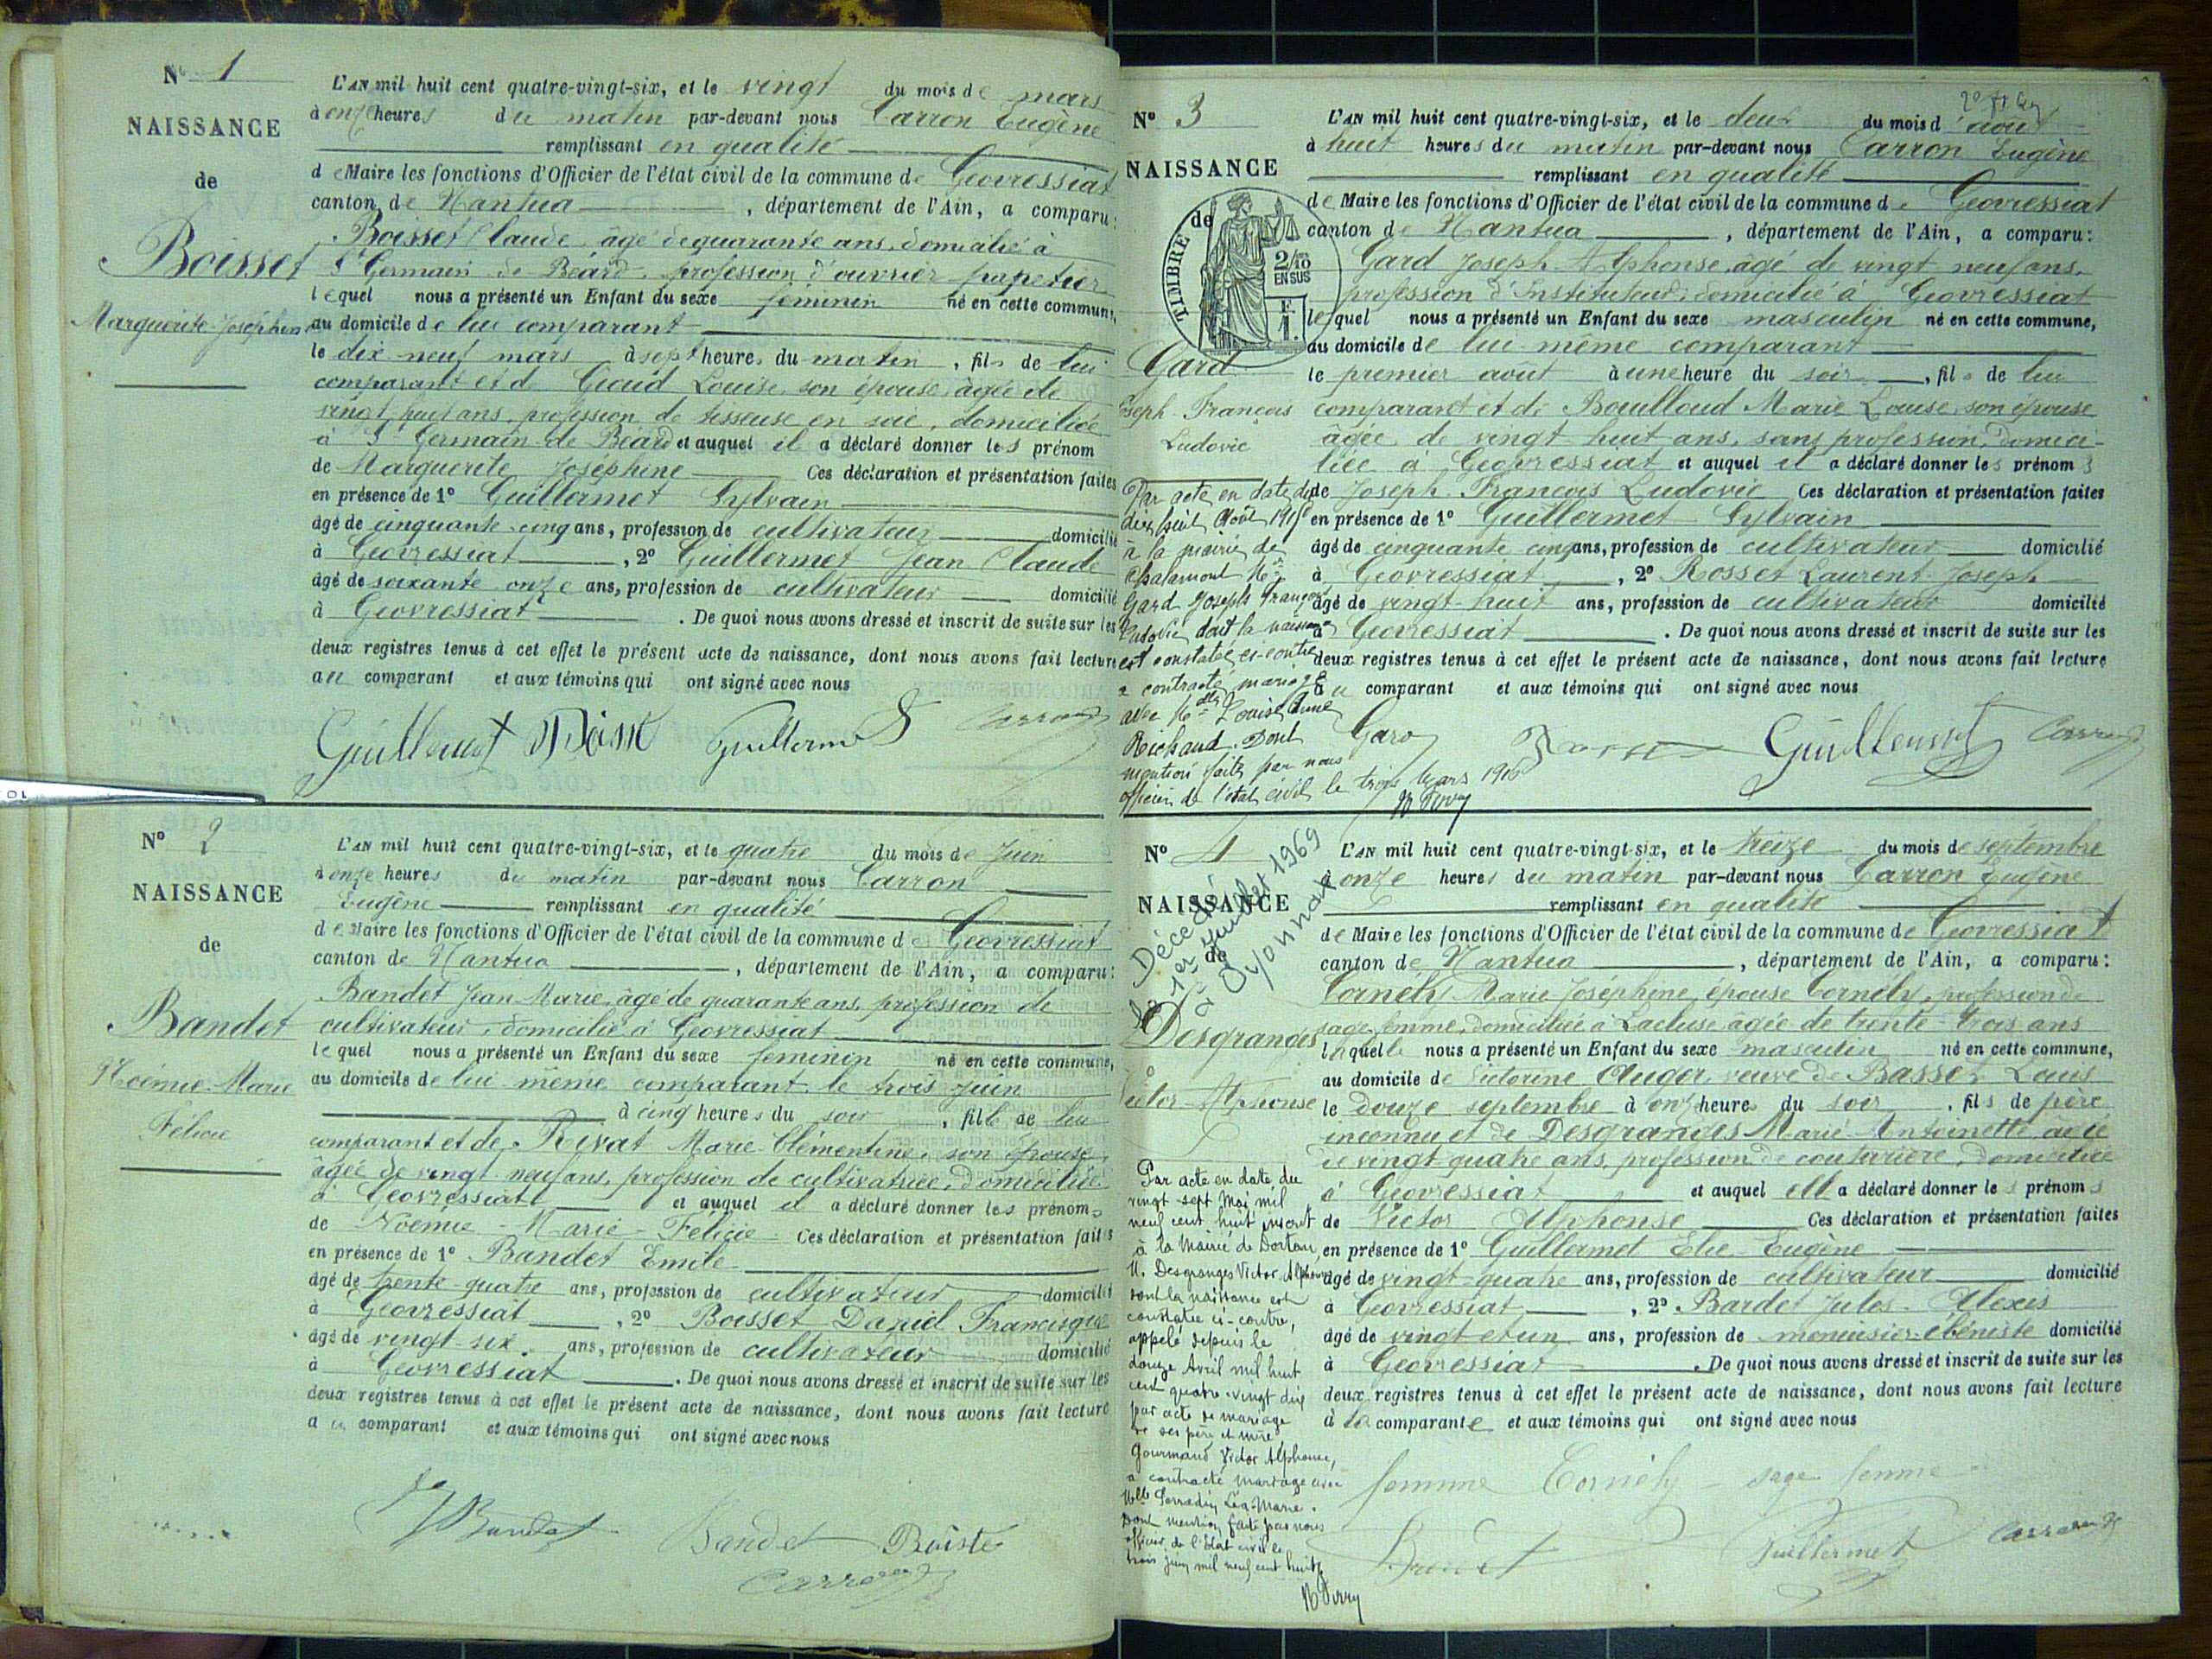 N° 1
NAISSANCE
de
Boisset
Marguerite Joséphine
L'AN mil huit cent quatre-vingt-six, et le vingt du mois de mars
à onze heures du matin par-devant nous Carron Eugène
remplissant en qualité
de Maire les fonctions d'Officier de l'état civil de la commune de Geovressiat
canton de Nantua, département de l'Ain, a comparu:
Boisset Claude, âgé de quarante ans, domicilié à
St Germain de Béard, profession d'ouvrier papetier
lequel nous a présenté un Enfant du sexe féminin né en cette commune,
au domicile de lui comparant
le dix neuf mars à sept heures du matin, fils de lui
comparant et de Louise, son épouse, âgée de
vingt huit ans, profession de tisseuse en soie, domiciliée
à St Germain de Béard et auquel il a déclaré donner les prénom
de Marguerite Joséphine Ces déclaration et présentation faites
en présence de 1° Guillermet Sylvain
âgé de cinquante-cinq ans, profession de cultivateur domicilié
à Geovressiat, 2° Guillermet Jean Claude
âgé de soixante onze ans, profession de cultivateur domicilié
à Geovressiat. De quoi nous avons dressé et inscrit de suite sur les
deux registres tenus à cet effet le présent acte de naissance, dont nous avons fait lecture
au comparant et aux témoins qui ont signé avec nous
Guillermet Guillermet Carron
N° 2
NAISSANCE
de
Bandet
Noémie-Marie
Félicie
L'AN mil huit cent quatre-vingt-six, et le quatre du mois de Juin
à onze heures du matin par-devant nous Carron
Eugène remplissant en qualité
de Maire les fonctions d'Officier de l'état civil de la commune de Geovressiat
canton de Nantua, département de l'Ain, a comparu:
Bandet Jean Marie, âgé de quarante ans, profession de
cultivateur, domicilié à Geovressiat
lequel nous a présenté un Enfant du sexe féminin né en cette commune,
au domicile de lui même comparant, le trois juin
à cinq heures du soir, fille de lui
comparant et de Rivat Marie Clémentine, son épouse,
âgée de vingt neuf ans, profession de cultivatrice, domiciliée
à Geovressiat et auquel il a déclaré donner les prénoms
de Noémie-Marie-Félicie Ces déclaration et présentation faites
en présence de 1° Bandet Emile
âgé de trente-quatre ans, profession de cultivateur domicilié
à Geovressiat, 2° Boisset Daniel Francisque
âgé de vingt-six ans, profession de cultivateur domicilié
à Geovressiat. De quoi nous avons dressé et inscrit de suite sur les
deux registres tenus à cet effet le présent acte de naissance, dont nous avons fait lecture
au comparant et aux témoins qui ont signé avec nous
Bandet Bandet Carron
N° 3
NAISSANCE
de
TIMBRE
2/10 EN SUS
F 1.
Gard
Joseph François
Ludovic
Par acte en date du
dix huit Août 1915
à la mairie de
Chalamont Mr
Gard Joseph François
Ludovic dont la naissance
est constatée ci-contre
a contracté mariage
avec Melle Louise
Richaud. Dont
mention faite par nous
officier de l'état civil le trois Mars 1916
L'AN mil huit cent quatre-vingt-six, et le deux du mois d'août
à huit heures du matin par-devant nous Carron Eugène
remplissant en qualité
de Maire les fonctions d'Officier de l'état civil de la commune de Geovressiat
canton de Nantua, département de l'Ain, a comparu:
Gard Joseph Alphonse, âgé de vingt neuf ans,
profession d'Instituteur, domicilié à Geovressiat
lequel nous a présenté un Enfant du sexe masculin né en cette commune,
au domicile de lui même comparant
le premier août à une heure du soir, fils de lui
comparant et de Bouilloud Marie Louise, son épouse
âgée de vingt huit ans, sans profession, domici-
liée à Geovressiat et auquel il a déclaré donner les prénoms
de Joseph-François Ludovic Ces déclaration et présentation faites
en présence de 1° Guillermet Sylvain
âgé de cinquante cinq ans, profession de cultivateur domicilié
à Geovressiat, 2° Rosset Laurent-Joseph
âgé de vingt-huit ans, profession de cultivateur domicilié
à Geovressiat. De quoi nous avons dressé et inscrit de suite sur les
deux registres tenus à cet effet le présent acte de naissance, dont nous avons fait lecture
au comparant et aux témoins qui ont signé avec nous
Gard Guillermet Carron
N° 4
NAISSANCE
de
Décédé
le 1er Juillet 1969
à Oyonnax
Desgranges
Victor-Alphonse
Par acte en date du
vingt-sept Mai mil
neuf cent huit inscrit
à la Mairie de Dortan,
M. Desgranges Victor Alphonse
dont la naissance est
constatée ci-contre,
appelé depuis le
douze Avril mil huit
cent quatre-vingt dix
par acte de mariage
de ses père et mère
Gourmand Victor Alphonse,
a contracté mariage avec
Melle Léa-Marie.
Dont mention faite par nous
officier de l'Etat civil le
trois juin mil neuf cent huit
L'AN mil huit cent quatre-vingt-six, et le treize du mois de septembre
à onze heures du matin par-devant nous Carron Eugène
remplissant en qualité
de Maire les fonctions d'Officier de l'état civil de la commune de Geovressiat
canton de Nantua, département de l'Ain, a comparu:
Cornély Marie Joséphine, épouse Cornély, profession de
sage-femme, domiciliée à Lacluse, âgée de trente-trois ans
laquelle nous a présenté un Enfant du sexe masculin né en cette commune,
au domicile de Victorine Auger, veuve de Basset Louis
le douze septembre à onze heures du soir, fils de père
inconnu et de Desgranges Marie-Antoinette, âgée
de vingt quatre ans, profession de couturière, domiciliée
à Geovressiat et auquel elle a déclaré donner les prénoms
de Victor Alphonse Ces déclaration et présentation faites
en présence de 1° Guillermet Elie-Eugène
âgé de vingt-quatre ans, profession de cultivateur domicilié
à Geovressiat, 2° Bardet Jules-Alexis
âgé de vingt et un ans, profession de menuisier-ébéniste domicilié
à Geovressiat. De quoi nous avons dressé et inscrit de suite sur les
deux registres tenus à cet effet le présent acte de naissance, dont nous avons fait lecture
à la comparante et aux témoins qui ont signé avec nous
femme Cornély sage femme
Guillermet Carron